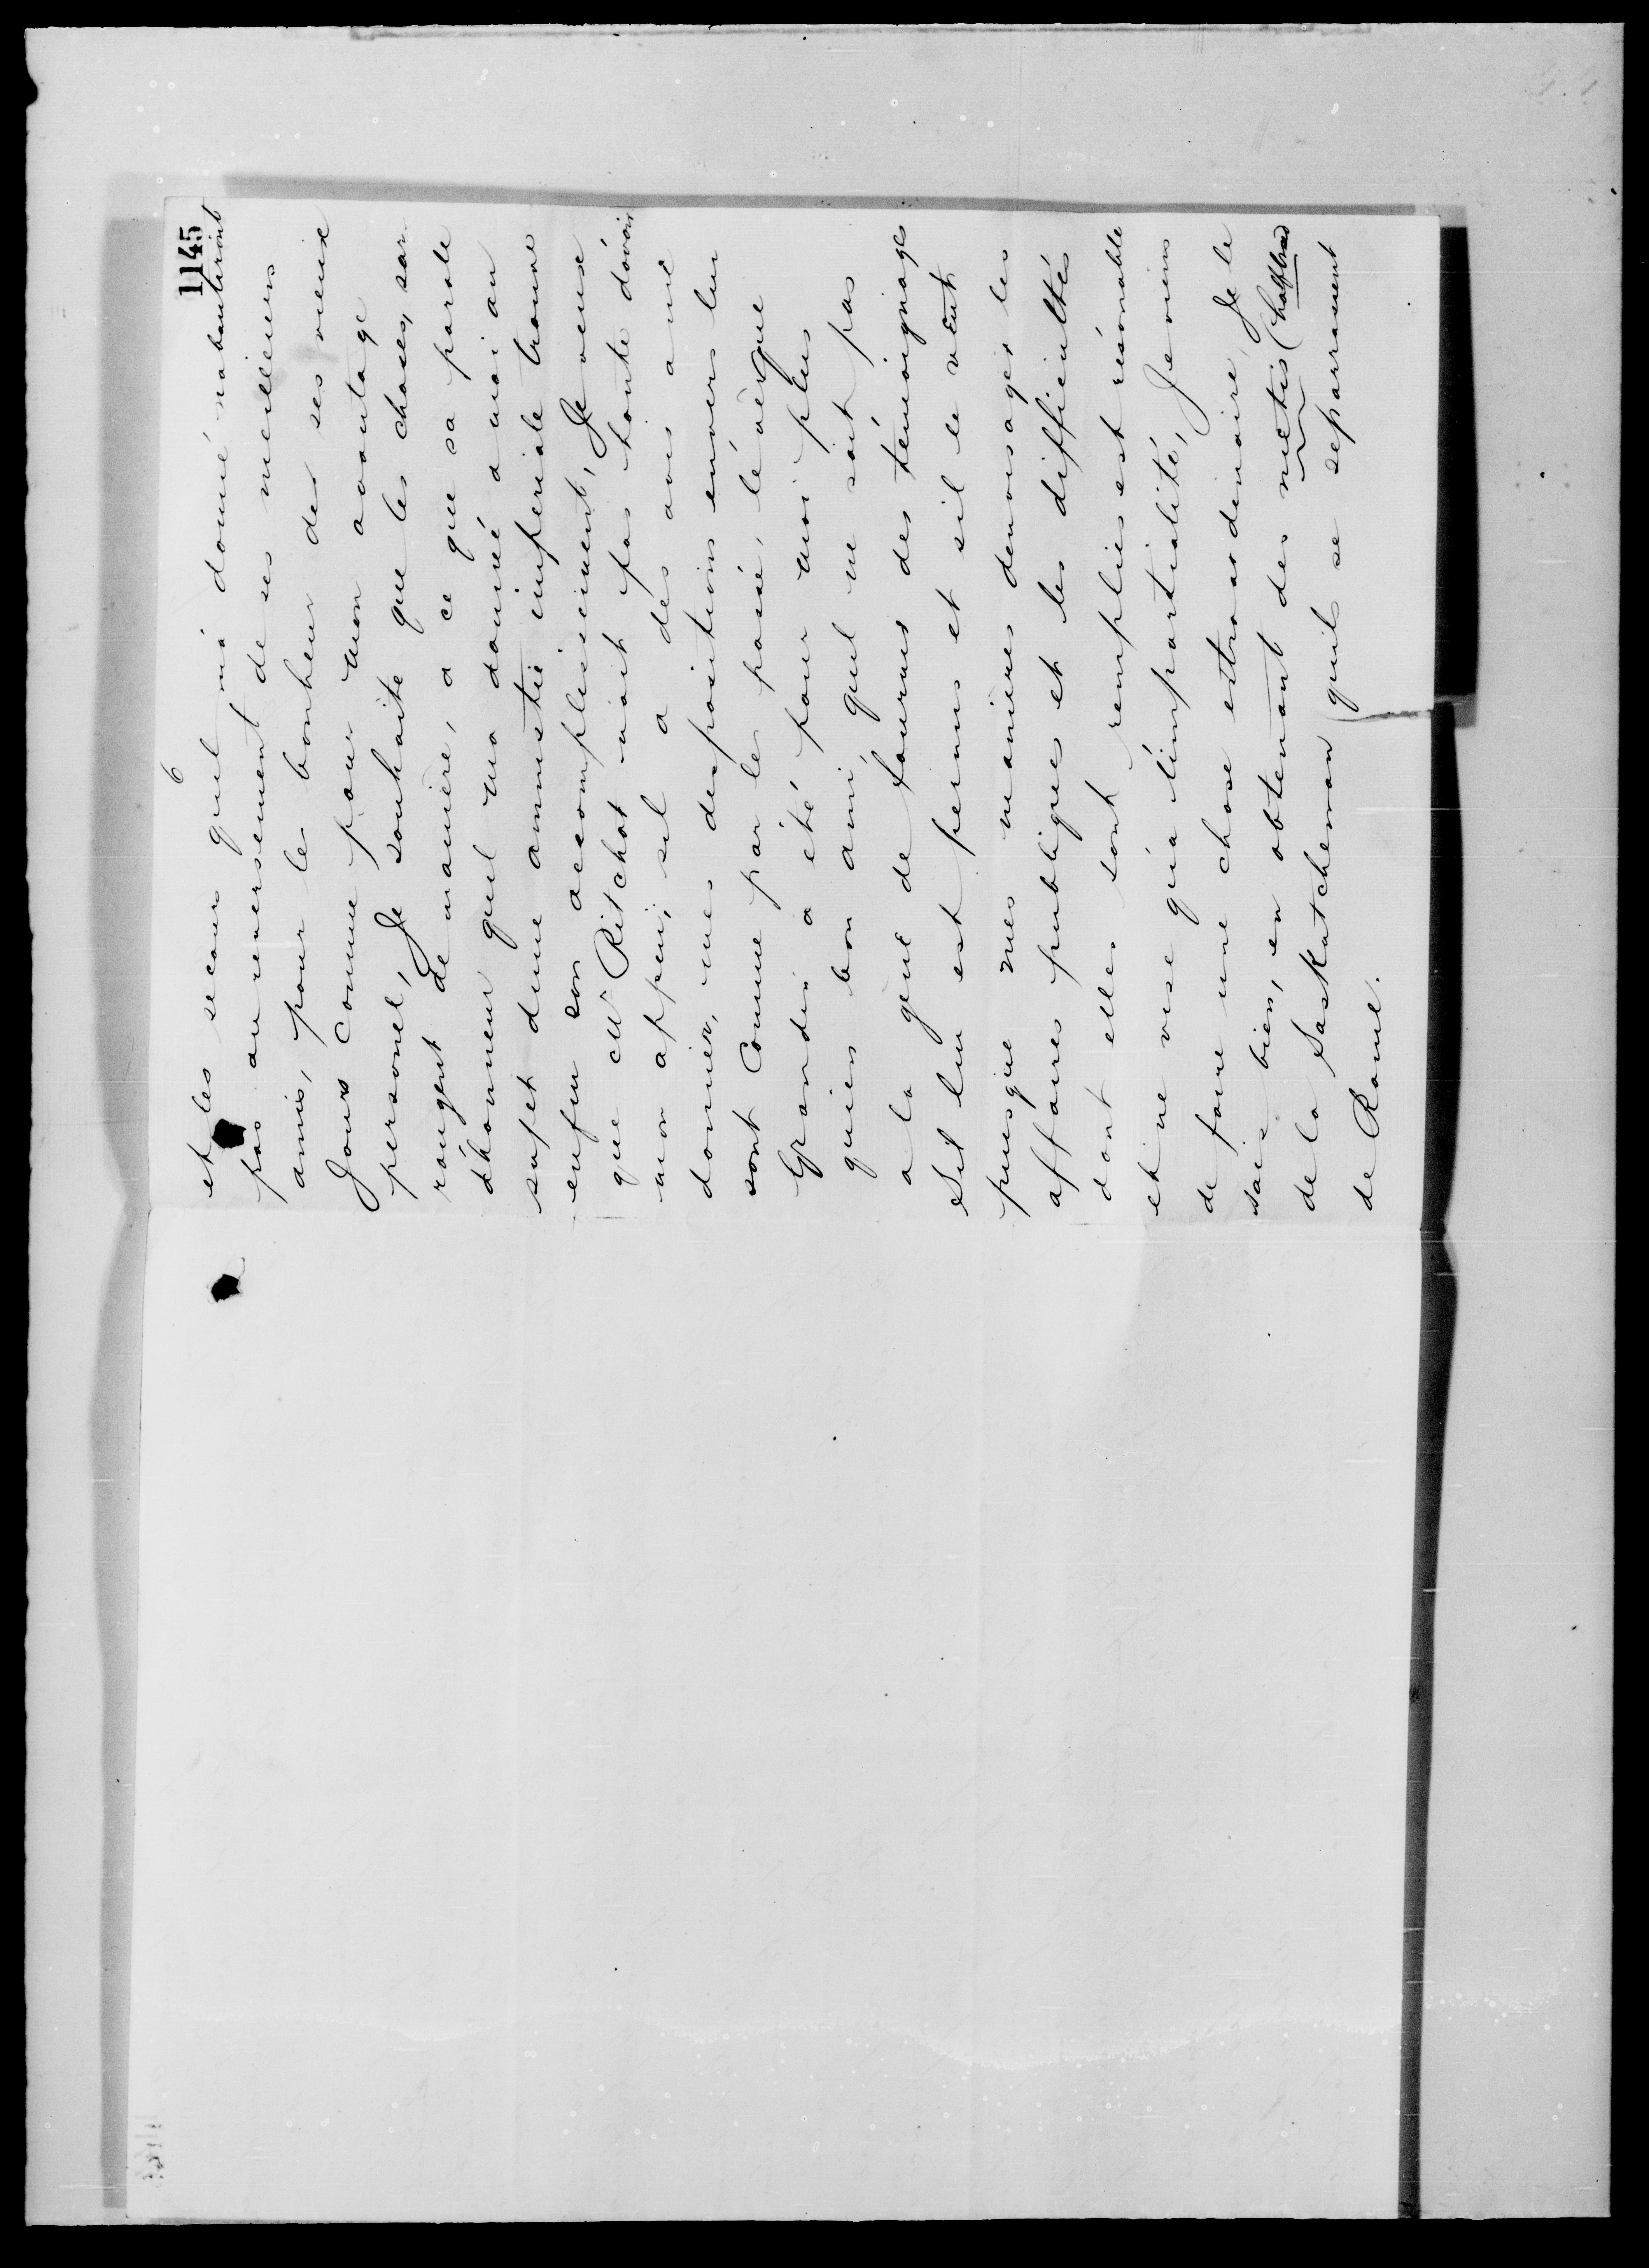 1145
6
et les secours quil má donné naboutiront
pas au renversement de ses meilleurs
amis, pour le bonheur de ses vieux
Jours comme pour mon avantage
personel, Je souhaite que les choses, sar
rángent de manière, a ce que sa parole
dhonneur quil ma donné a moi au
sujet dune amnistie imperiale trouve
enfin son accomplissement, Je veux
que Mr Ritchot nait pas honte dávoir
mon appui, sil a des avis a me
donner, mes dispositions envers lui
sont Comme par le passé, lévêque
Grandin a été pour moi plus
quien bon ami, quil ne soit pas
a la gène de fournir des témoignages
Sil lui est permis et sil le veut
puisque mes manières denvisager les
affaires publiques et les difficultés
dont elles sont remplies est résonable
et ne vise quá límpartialité, Je viens
de faire une chose extraordinaire, Je le
sais bien, en obtenant des metis (halfbreed
de la Saskatchewan quils se séparrassent
de Rome.